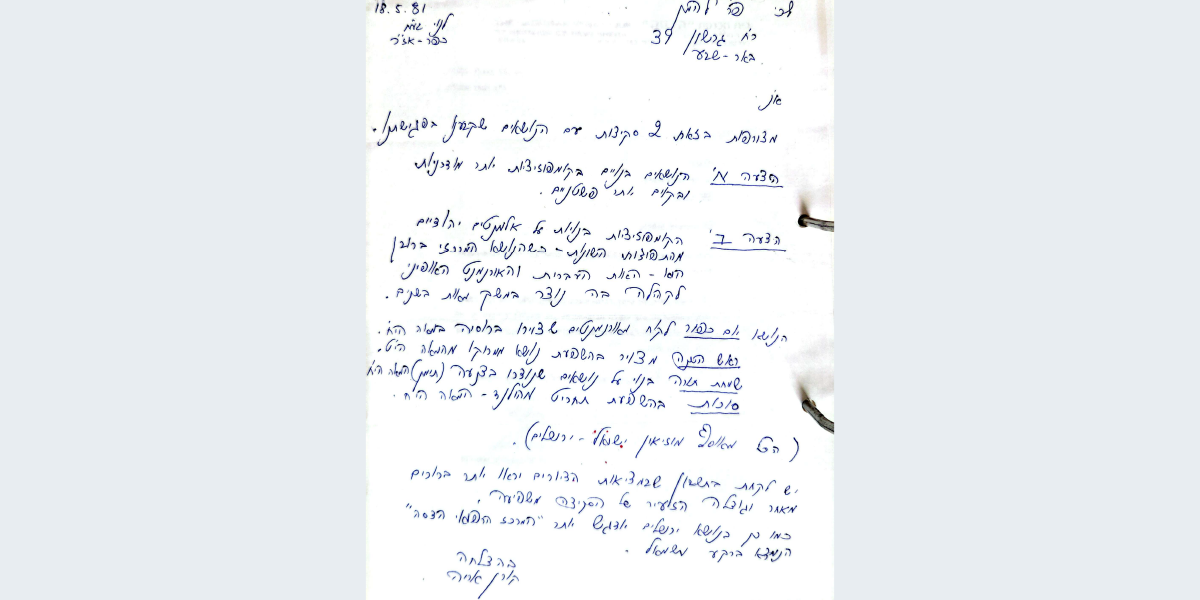 18.5.81
רח' גרשון 39
באר-שבע
א.נ
מצורפות בזאת 2 סקיצות עם הנושאים שקבענו בפגישתנו.
הצעה א' הנושאים בנויים בקומפוזיציות יותר מודרניות
ובקוים יותר פשטניים.
הצעה ב' הקומפוזיציות בנויות על אלמנטים יהודיים
מהתפוצות השונות - כשהנושא המרכזי ברובן
הם - האות העברית והאורנמנט האופיני
לקהילה בה נוצר במשך מאות בשנים.
הנושא יום כפור לקוח מאורנמנטים שצוירו ברוסיה במאה הי"ח.
ראש השנה מצויר בהשפעת נושא ממרוקו מהמאה הי"ט.
שמחת תורה בנוי על נושאים שנוצרו בצנעה (תימן) המאה הי"ח
סוכות בהשפעת תחריט מהולנד - המאה הי"ח.
(הכל מאוסף מוזיאון ישראל - ירושלים).
יש לקחת בחשבון שבמציאות הציורים יראו יותר ברורים
מאחר וגודלה הזעיר של הסקיצה משפיעה.
כמו כן בנושא ירושלים יודגש יותר "המרכז הרפואי הדסה"
הנמצא ברקע משמאל.
בהצלחה
קורן אריה